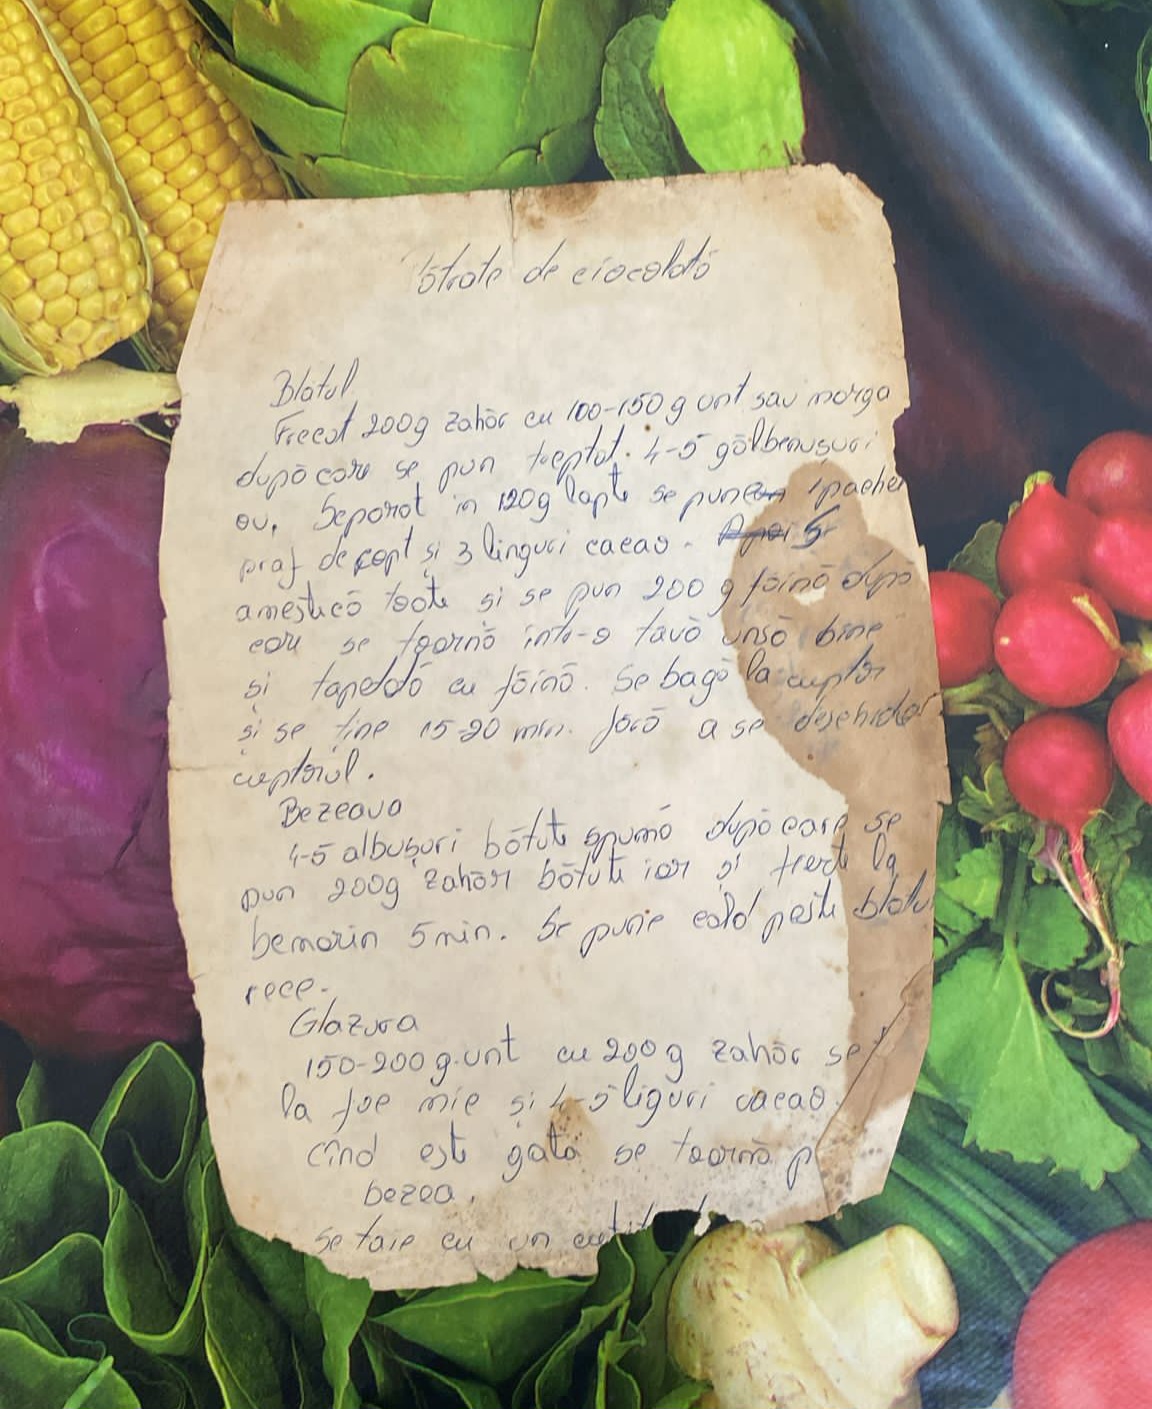 Pătrate de ciocolată
Blatul
Frecat 200g zahăr cu 100-150 g unt sau marga
după care se pun treptat 4-5 gălbenușuri
ou. Separat in 120g lapte se pune 1 pachet
praf de copt și 3 linguri cacao. Apoi Se
amestică toate și se pun 200 g făină după
care se toarnă intr-o tavă unsă bine
și tapeddă cu făină. Se bagă la cuptor
și se ține 15-20 min. fără a se deschide
cuptorul.
Bezeaua
4-5 albușuri bătute spumă după care se
pun 200g zahăr bătute iar și fierte la
bemarin 5 min. Se pune cald peste blatu
rece.
Glazura
150-200 g.unt cu 200 g zahăr se
la foc mic și 4-5 liguri cacao.
cînd este gata se toarnă p
bezea.
se taie cu un cuțit